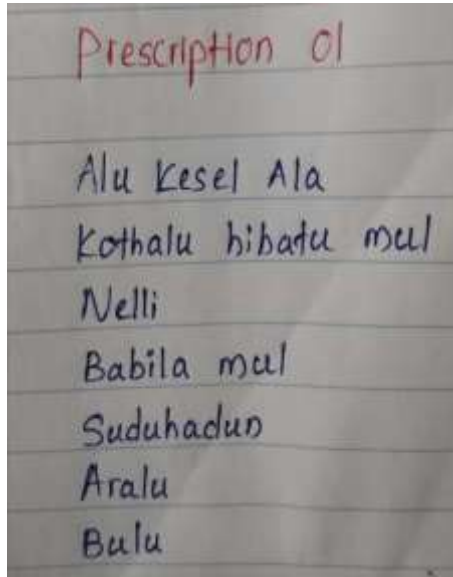 Prescription 01
Alu Kesel Ala
Kothalu hibatu mul
Nelli
Babila mul
Suduhadun
Aralu
Bulu